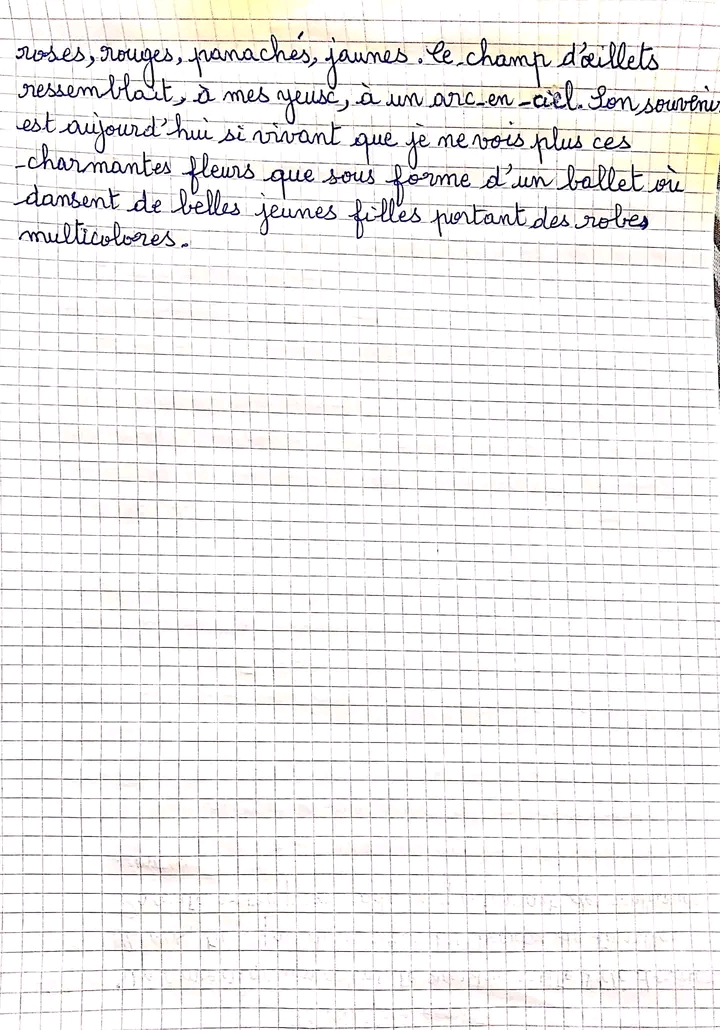 roses, rouges, panachés, jaunes. Le champ d'œillets
ressemblait, à mes yeux, à un arc-en-ciel. Son souvenir
est aujourd'hui si vivant que je ne vois plus ces
charmantes fleurs que sous forme d'un ballet où
dansent de belles jeunes filles portant des robes
multicolores.